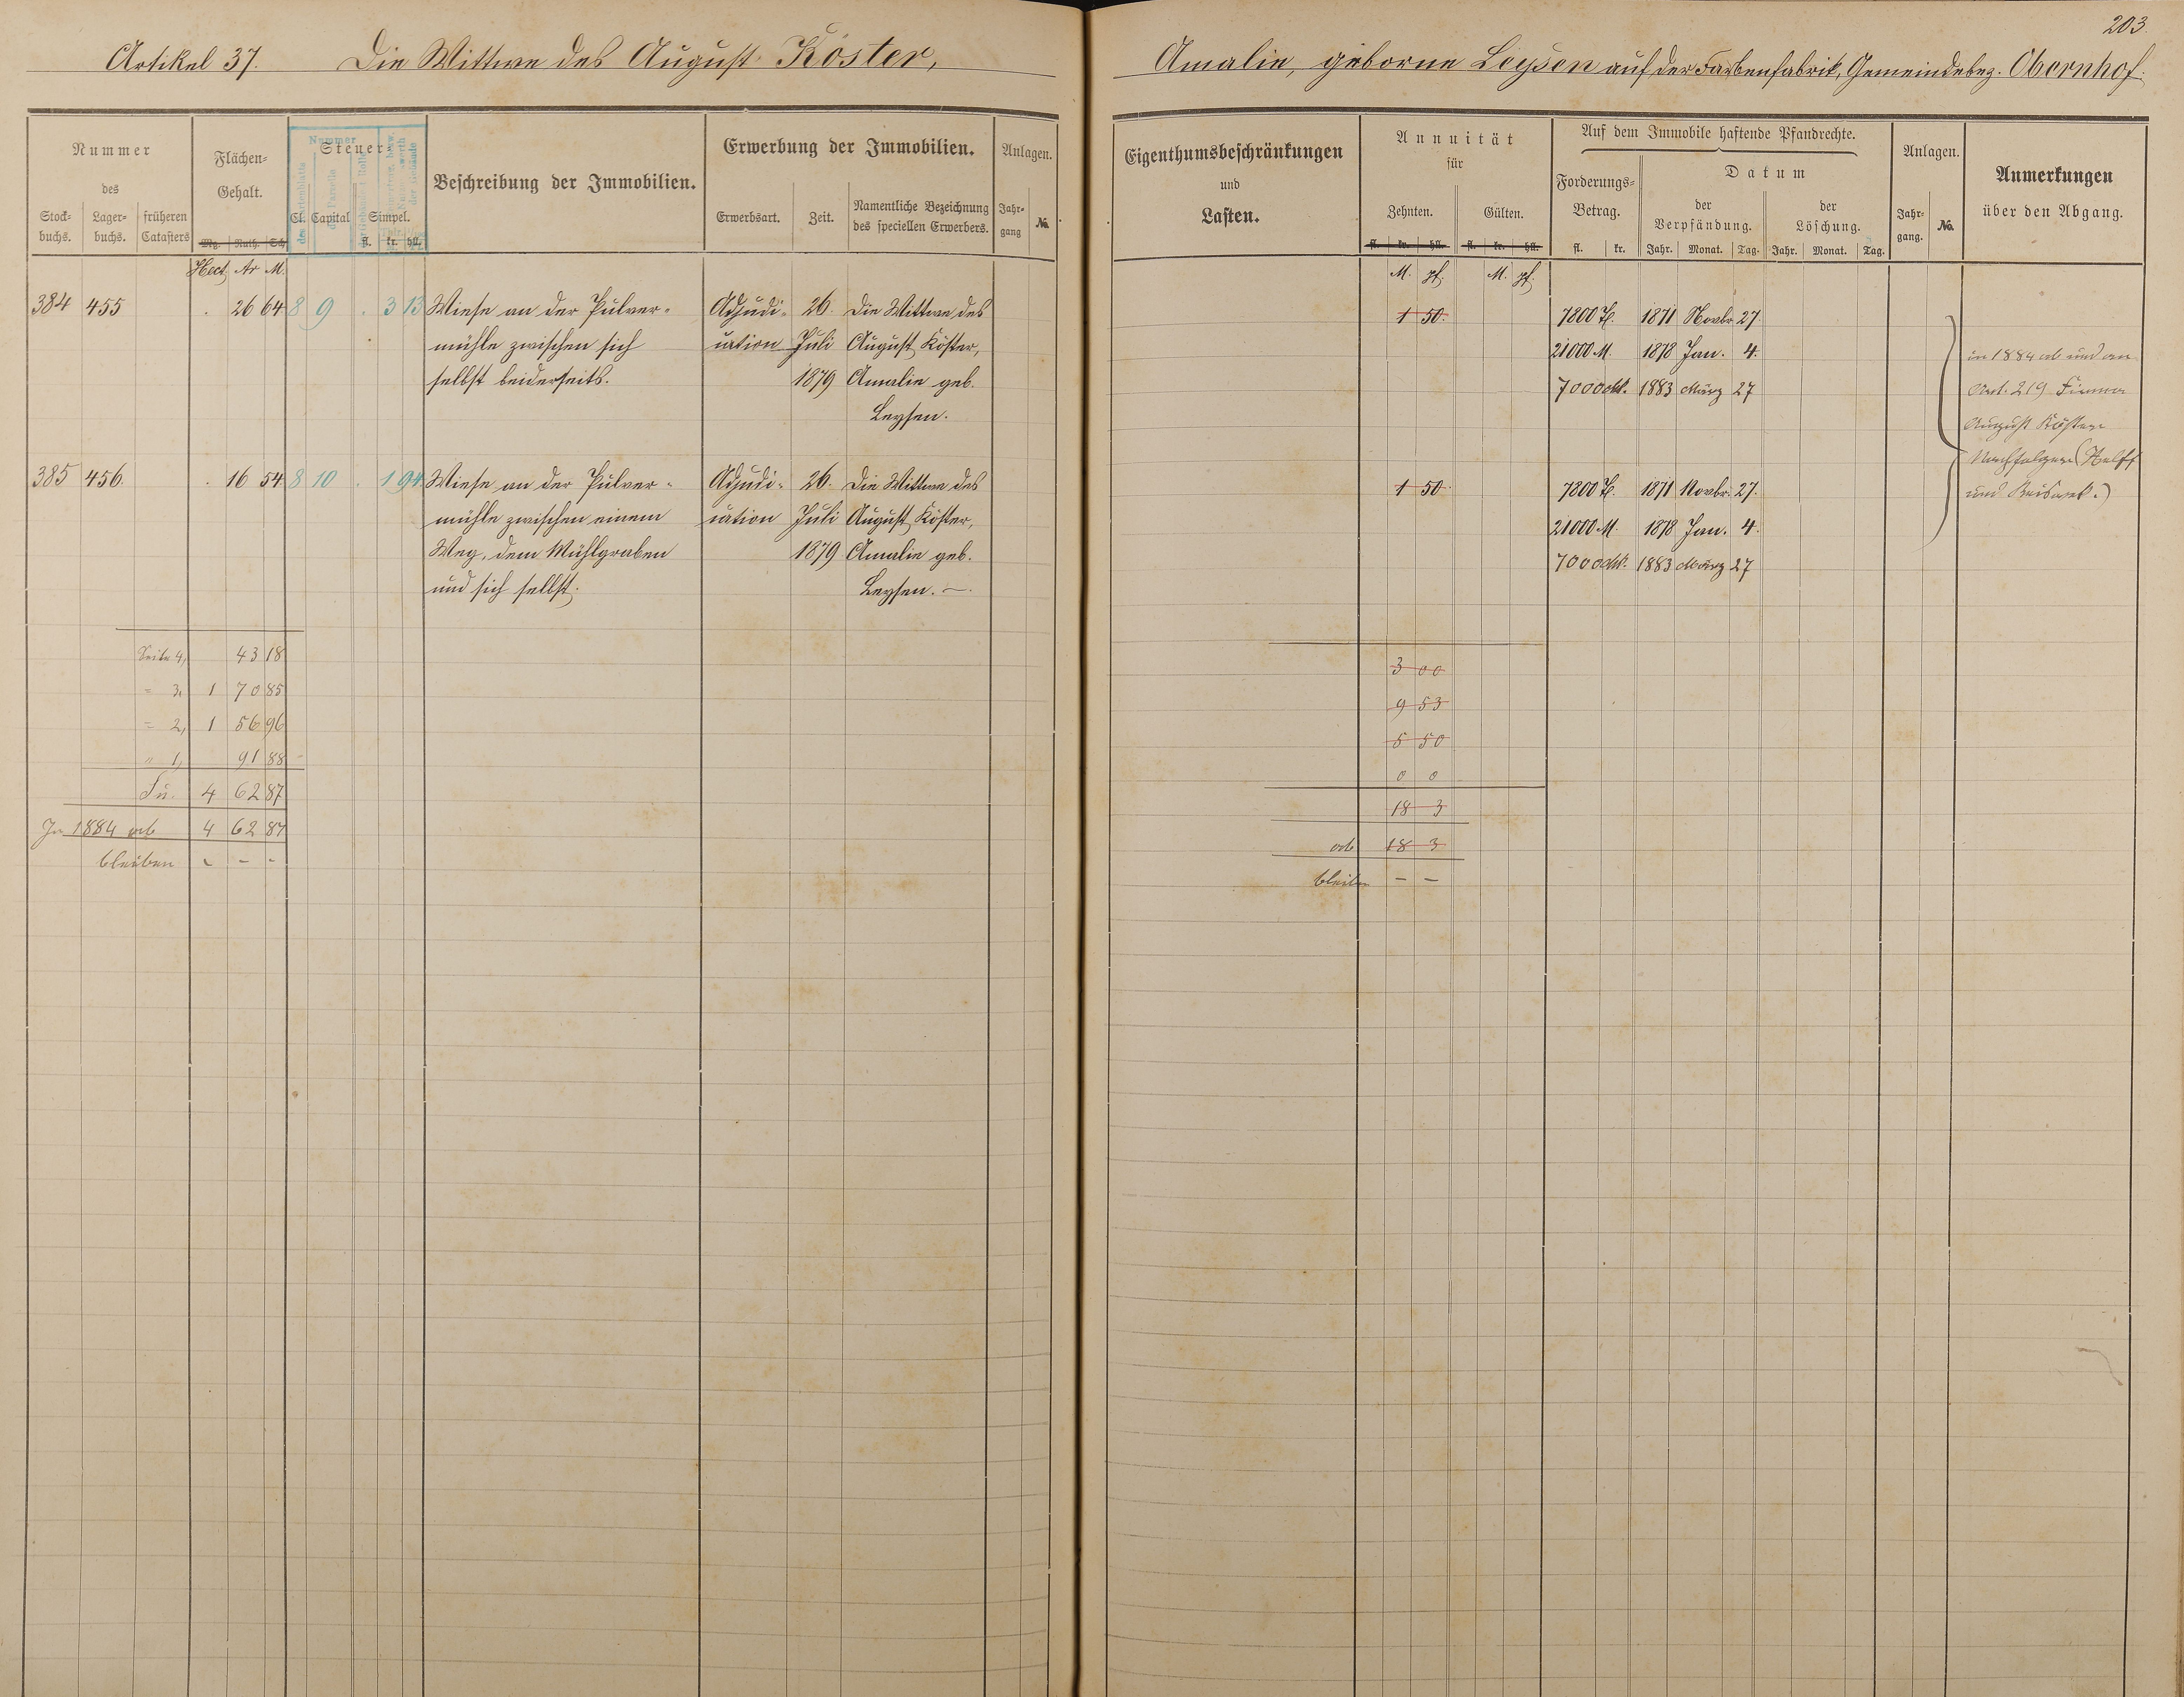 203.
Artikel 37. Die Wittwe des August Köster, Amalie, geborne Leysen auf der Farbenfabrik, Gemeindebez. Obernhof.
Nummer
des
Stock-buchs. Lager-buchs. früheren Catasters
Flächen-Gehalt.
Mg. Ruth. Sch.
Steuer
Cl. Capital Simpel.
fl. kr. hll.
Beschreibung der Immobilien.
Erwerbung der Immobilien.
Erwerbsart. Zeit. Namentliche Bezeichnung des speciellen Erwerbers.
Anlagen.
Jahr-gang No.
Eigenthumsbeschränkungen
und
Lasten.
Annuität
für
Zehnten. Gülten.
fl. kr. hll. fl. kr. hll.
Auf dem Immobile haftende Pfandrechte.
Forderungs-Betrag.
fl. kr.
Datum
der Verpfändung. der Löschung.
Jahr. Monat. Tag. Jahr. Monat. Tag.
Anlagen.
Jahr-gang. No.
Anmerkungen
über den Abgang.
Hect. Ar M.
M. pf. M. pf.
384 455 . 26 64 8 9 . 3 13 Wiese an der Pulver- Adjudi- 26. Die Wittwe des
mühle zwischen sich cation Juli August Köster,
selbst beiderseits. 1879 Amalie geb.
Leysen.
1 50. 7800 1871 Novbr 27.
21000 M. 1878 Jan. 4.
7000 Mk. 1883 März 27
in 1884 ab und an
Art. 219 Firma
August Köster
Nachfolger
und
385 456. . 16 54 8 10 . 1 94 Wiese an der Pulver- Adjudi- 26. Die Wittwe des
mühle zwischen einem cation Juli August Köster,
Weg, dem Mühlgraben 1879 Amalie geb.
und sich selbst. Leysen. —
1 50. 7800 1871 Novbr. 27.
21000 M. 1878 Jan. 4.
7000 Mk. 1883 März 27
Seite 4, 43 18
= 3, 1 70 85
= 2, 1 56 96
" 1, 91 88
Su. 4 62 87
In 1884 ab 4 62 87
bleiben - - -
3 00
9 53
5 50
0 0
18 3
ab 18 3
bleiben — —